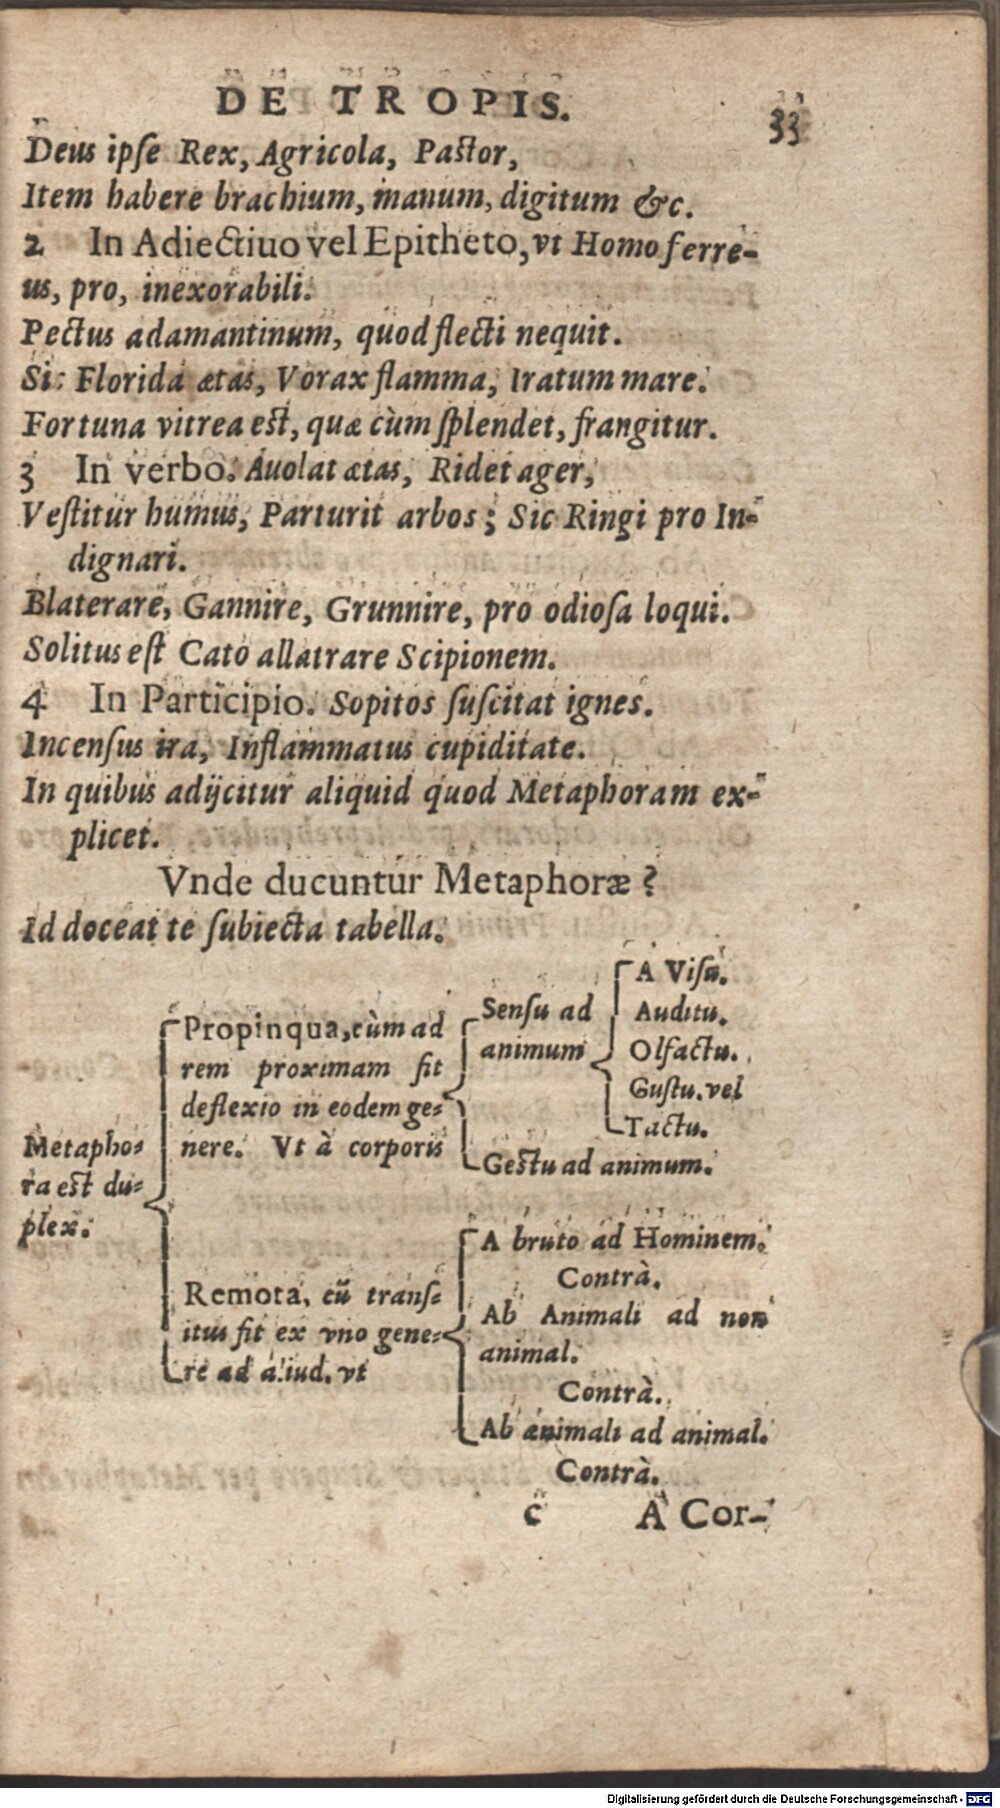 DE TROPIS.
33
Deus ipſe Rex, Agricola, Paſtor,
Item habere brachium, manum, digitum &c.
2 In Adiectiuo vel Epitheto, vt Homo ferre-
us, pro, inexorabili.
Pectus adamantinum, quod flecti nequit.
Sic Florida ætas, Vorax flamma, Iratum mare.
Fortuna vitrea eſt, quæ cùm ſplendet, frangitur.
3 In verbo. Auolat ætas, Ridet ager,
Veſtitur humus, Parturit arbos; Sic Ringi pro In-
dignari.
Blaterare, Gannire, Grunnire, pro odioſa loqui.
Solitus eſt Cato allatrare Scipionem.
4 In Participio. Sopitos ſuſcitat ignes.
Incenſus ira, Inflammatus cupiditate.
In quibus adijcitur aliquid quod Metaphoram ex-
plicet.
Vnde ducuntur Metaphoræ?
Id doceat te ſubiecta tabella.
Metapho-
ra eſt du-
plex.
Propinqua, cùm ad
rem proximam fit
deflexio in eodem ge-
nere. Vt à corporis
Senſu ad
animum
A Viſu.
Auditu.
Olfactu.
Guſtu. vel
Tactu.
Geſtu ad animum.
Remota, cũ tranſ-
itus fit ex vno gene-
re ad aliud. vt
A bruto ad Hominem.
Contrà.
Ab Animali ad non
animal.
Contrà.
Ab animali ad animal.
Contrà.
c A Cor-
Digitalisierung gefördert durch die Deutsche Forschungsgemeinschaft - DFG